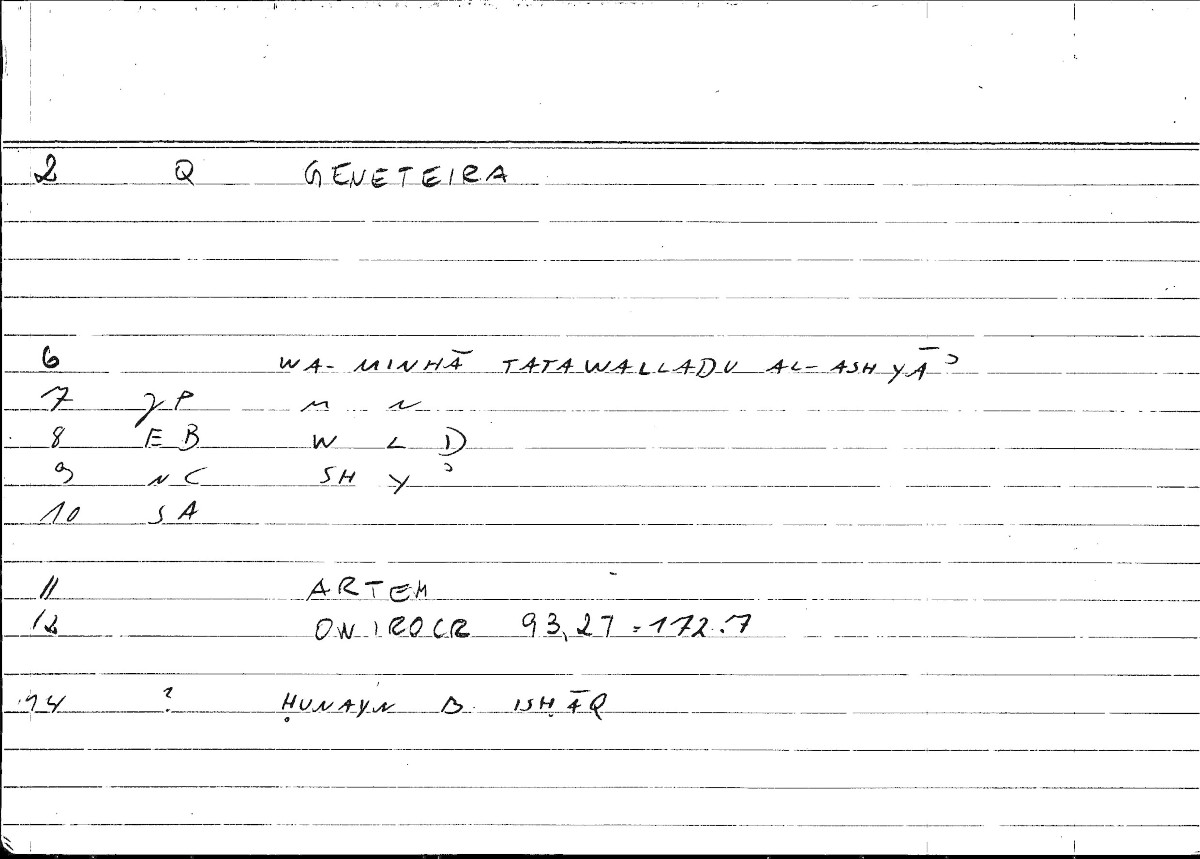 2 Q GENETEIRA
6 WA- MINHĀ TATAWALLADU AL- ASHYĀʾ
7 γP M N
8 EB W L D
9 NC SH Y ʾ
10 SA
11 ARTEM
12 ONIROCR 93,27 = 172.7
14 ? ḤUNAYN B. ISḤĀQ